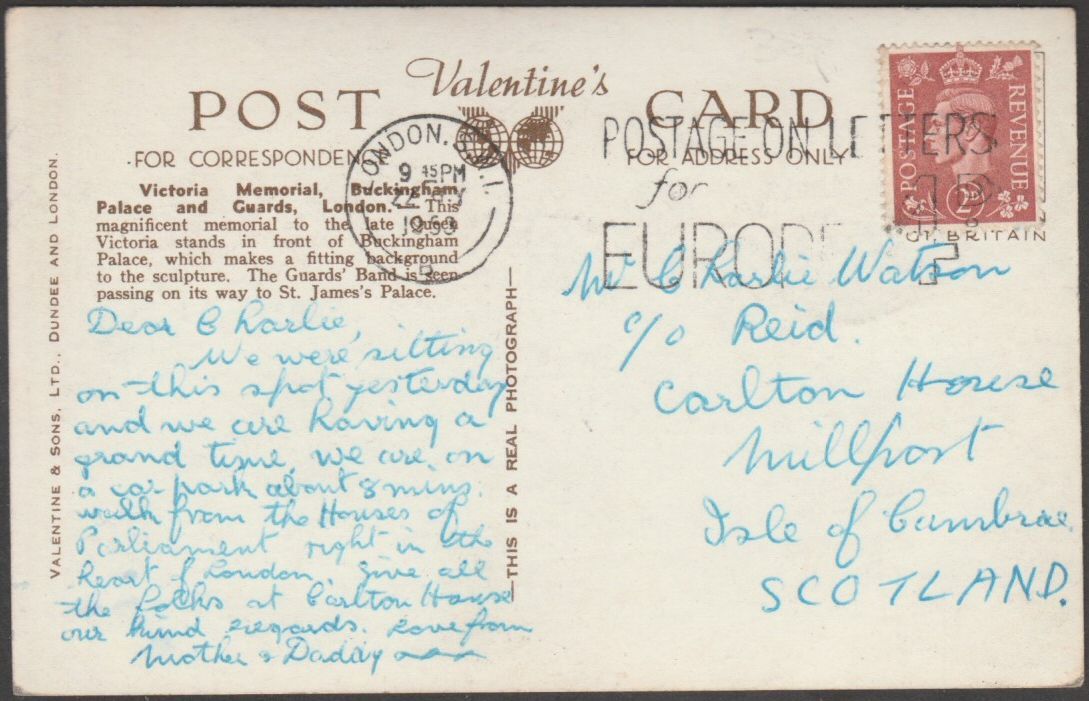 Valentine's
POST CARD
FOR CORRESPONDEN
FOR ADDRESS ONLY
Victoria Memorial, Buckingham
Palace and Guards, London. This
magnificent memorial to the late Queen
Victoria stands in front of Buckingham
Palace, which makes a fitting background
to the sculpture. The Guards' Band is seen
passing on its way to St. James's Palace.
VALENTINE & SONS, LTD., DUNDEE AND LONDON.
THIS IS A REAL PHOTOGRAPH
LONDON. S.W.1.
9 45 PM
22
B
POSTAGE ON LETTERS
for
EUROPE
POSTAGE
REVENUE
2D
GT BRITAIN
Dear Charlie,
We were sitting
on this spot yesterday
and we are having a
grand time, we are on
a car park about 8 mins.
walk from the Houses of
Parliament right in the
heart of London. Give all
the folks at Carlton House
our kind regards. Love from
Mother & Daddy
Mr Charlie Watson
c/o Reid.
Carlton House
Millport
Isle of Cumbrae
SCOTLAND.